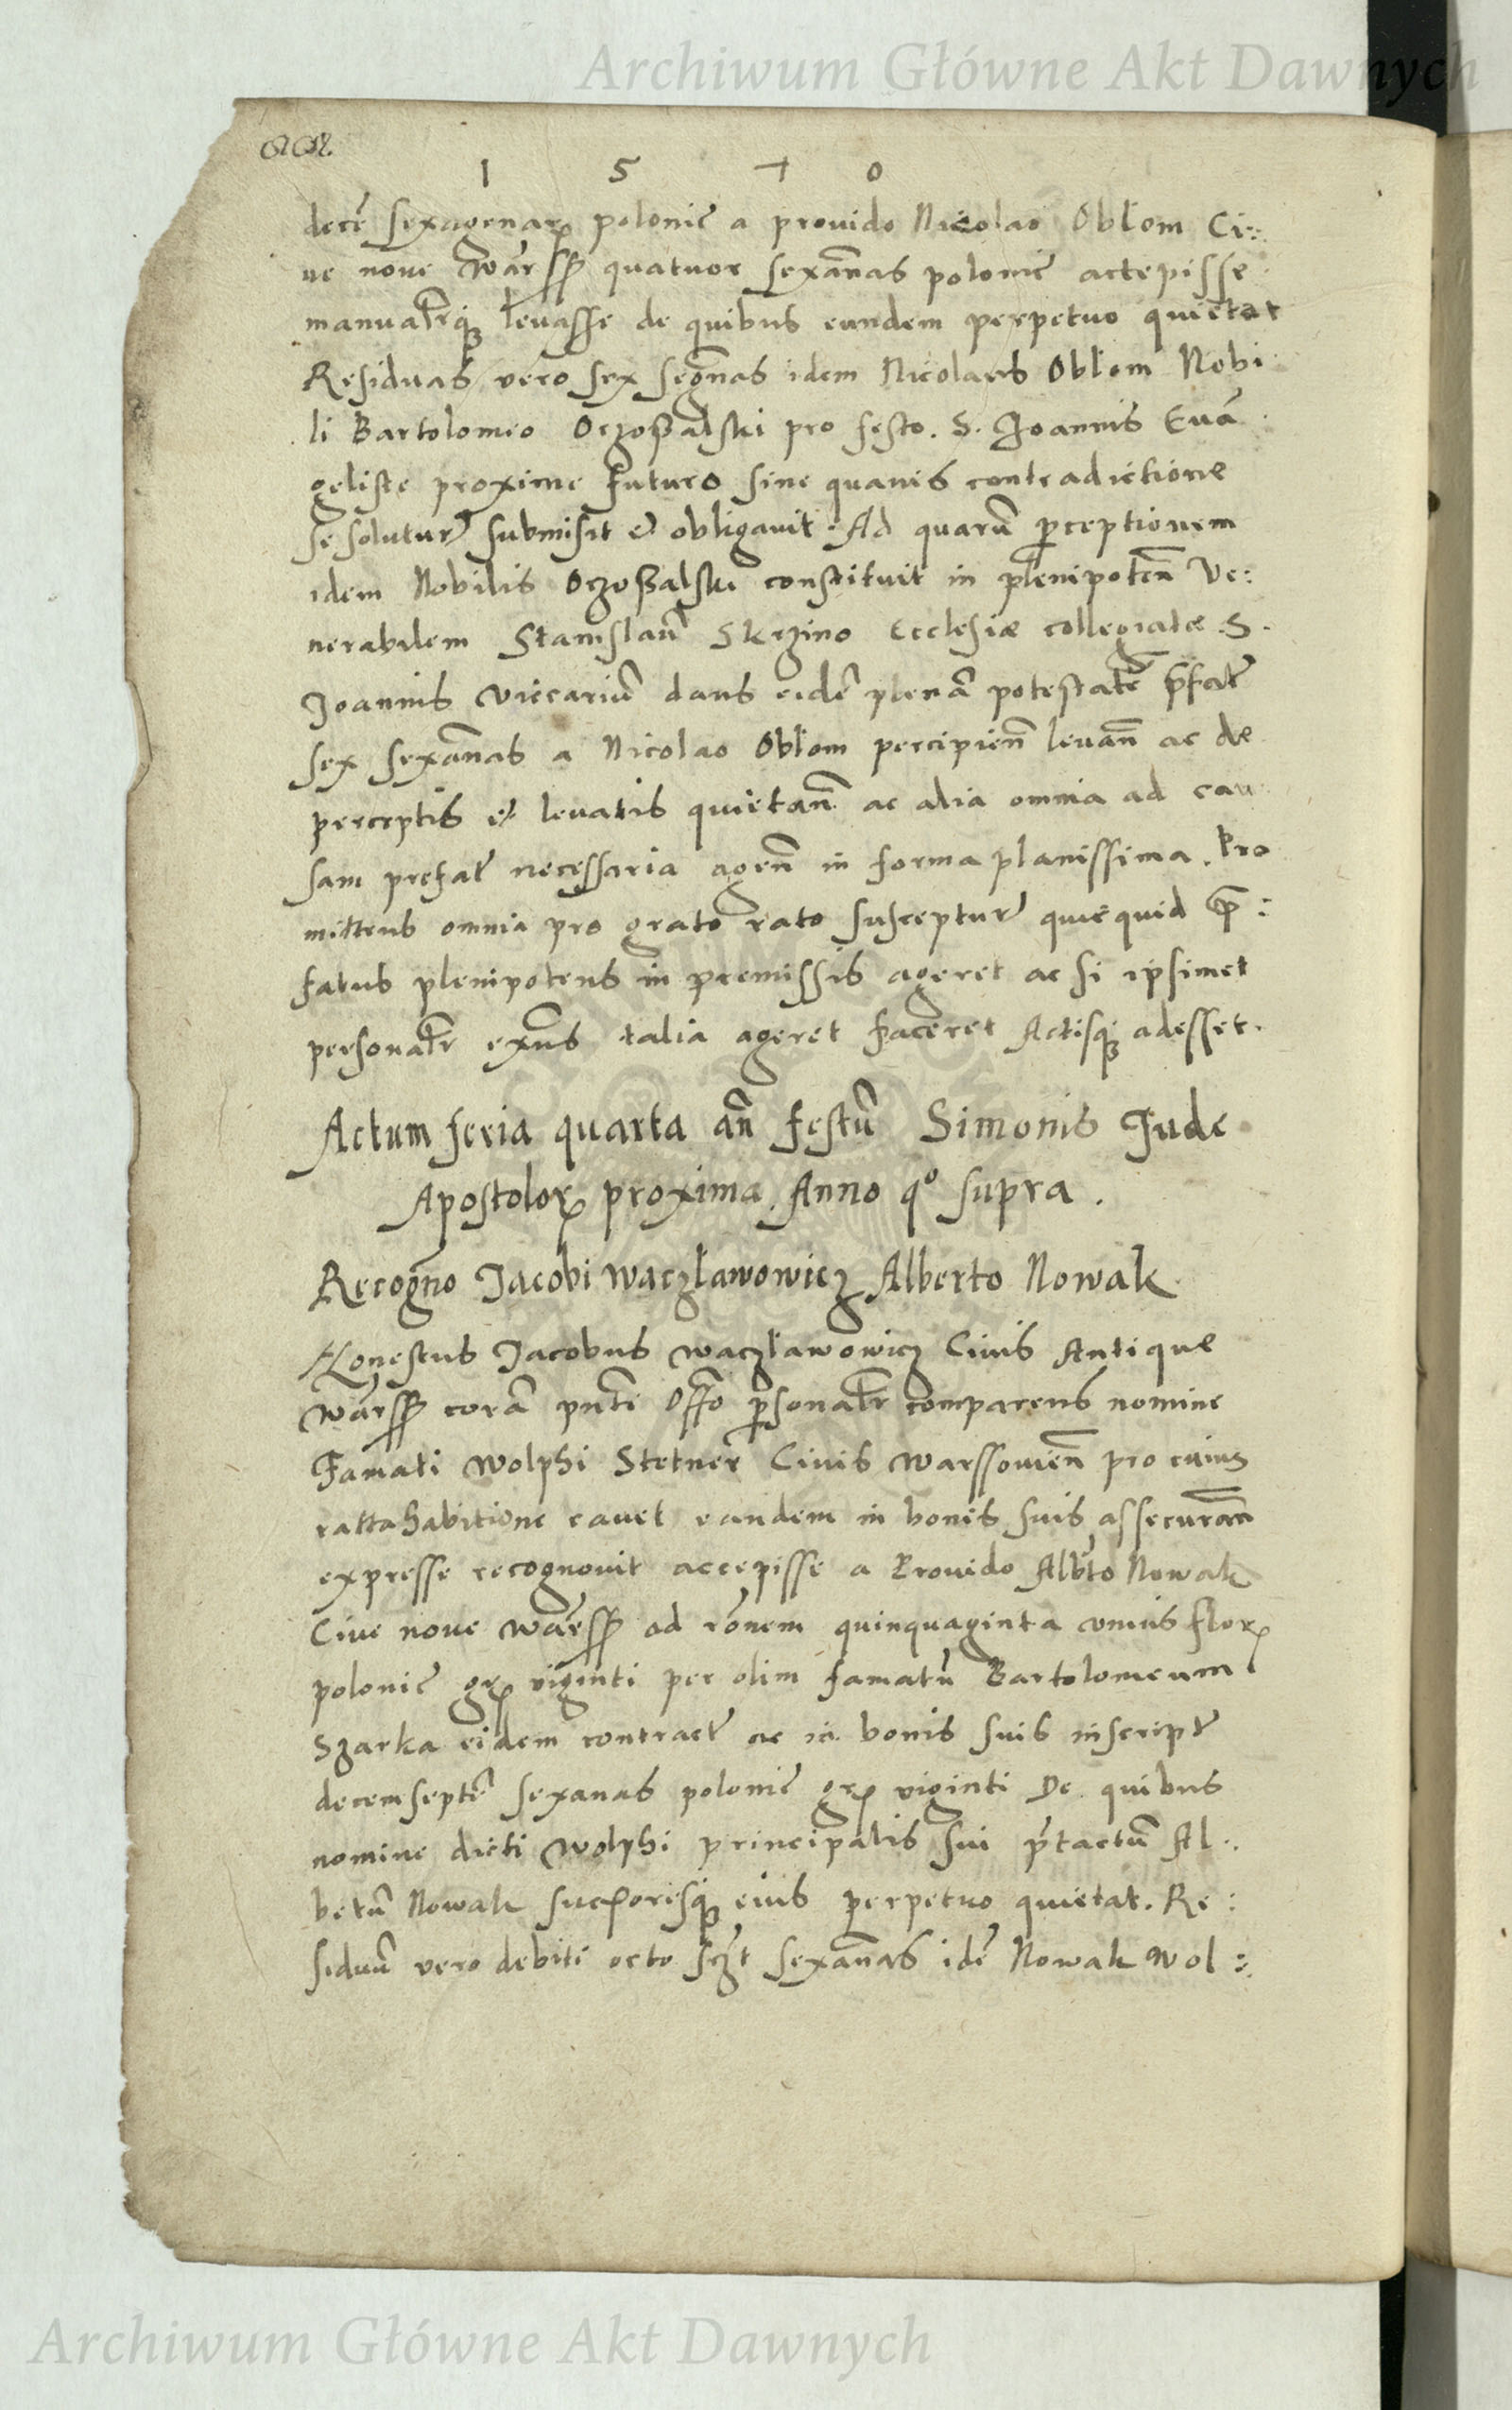 Archiwum Główne Akt Dawnych
1 5 7 0
decē sexagenarꝝ polonic̄ a provido Nicolao Oblom Ci:
ve nove Warss quatuor sexān̄as polonic̄ accepisse
manualr̄q₃ levasse de quibus eundem perpetuo quietat
Residuas vero sex segn̄as idem Nicolaus Oblom Nobi
li Bartolomeo Oczoßalski pro festo. S. Joannis Evā
geliste proxime futuro sine quavis contradictione
se solutur̄ submisit et obligavit. Ad quarū perceptionem
idem Nobilis Oczoßalski constituit in plenipoten̄ Ve:
nerabilem Stanislaū Skrzino Ecclesiæ collegiatæ. S.
Joannis viccariū dans eidē plenā potestatē p̄fat̄
sex sexan̄as a Nicolao Oblom percipien̄ levan̄ ac de
perceptis et levatis quietan̄ ac alia omnia ad cau
sam prefat̄ necessaria agen̄ in forma planissima. Pro
mittens omnia pro grato rato susceptur̄ quicquid p̄:
fatus plenipotens in premissis ageret ac si ipsimet
personalr̄ exn̄s talia ageret faceret Actisq₃ adesset.
Actum feria quarta an̄ festū Simonis Jude
Apostolorꝝ proxima. Anno qº supra.
Recogn̄o Jacobi Waczławowicz Alberto Nowak
Honestus Jacobus Waczławowicz Civis Antique
Warss corā pn̄ti Offo personalr̄ comparens nomine
Famati Wolphi Stetner Civis Warssovien̄ pro cuius
rattahabitione cavet eandem in bonis suis assecuran̄
expresse recognovit accepisse a Provido Alb̄to Nowak
Cive nove Warss ad rōnem quinquaginta unius florꝝ
polonic̄ grꝝ viginti per olim famatū Bartolomeum
Szarka eidem contract̄ ac in bonis suis inscript̄
decemseptē sexanas polonic̄ grꝝ viginti De quibus
nomine dicti Wolphi principalis sui p̄tactū Al:
betū Nowak sucsoresq₃ eius perpetuo quietat. Re:
siduū vero debiti octo sczt sexan̄as idē Nowak Wol:
Archiwum Główne Akt Dawnych